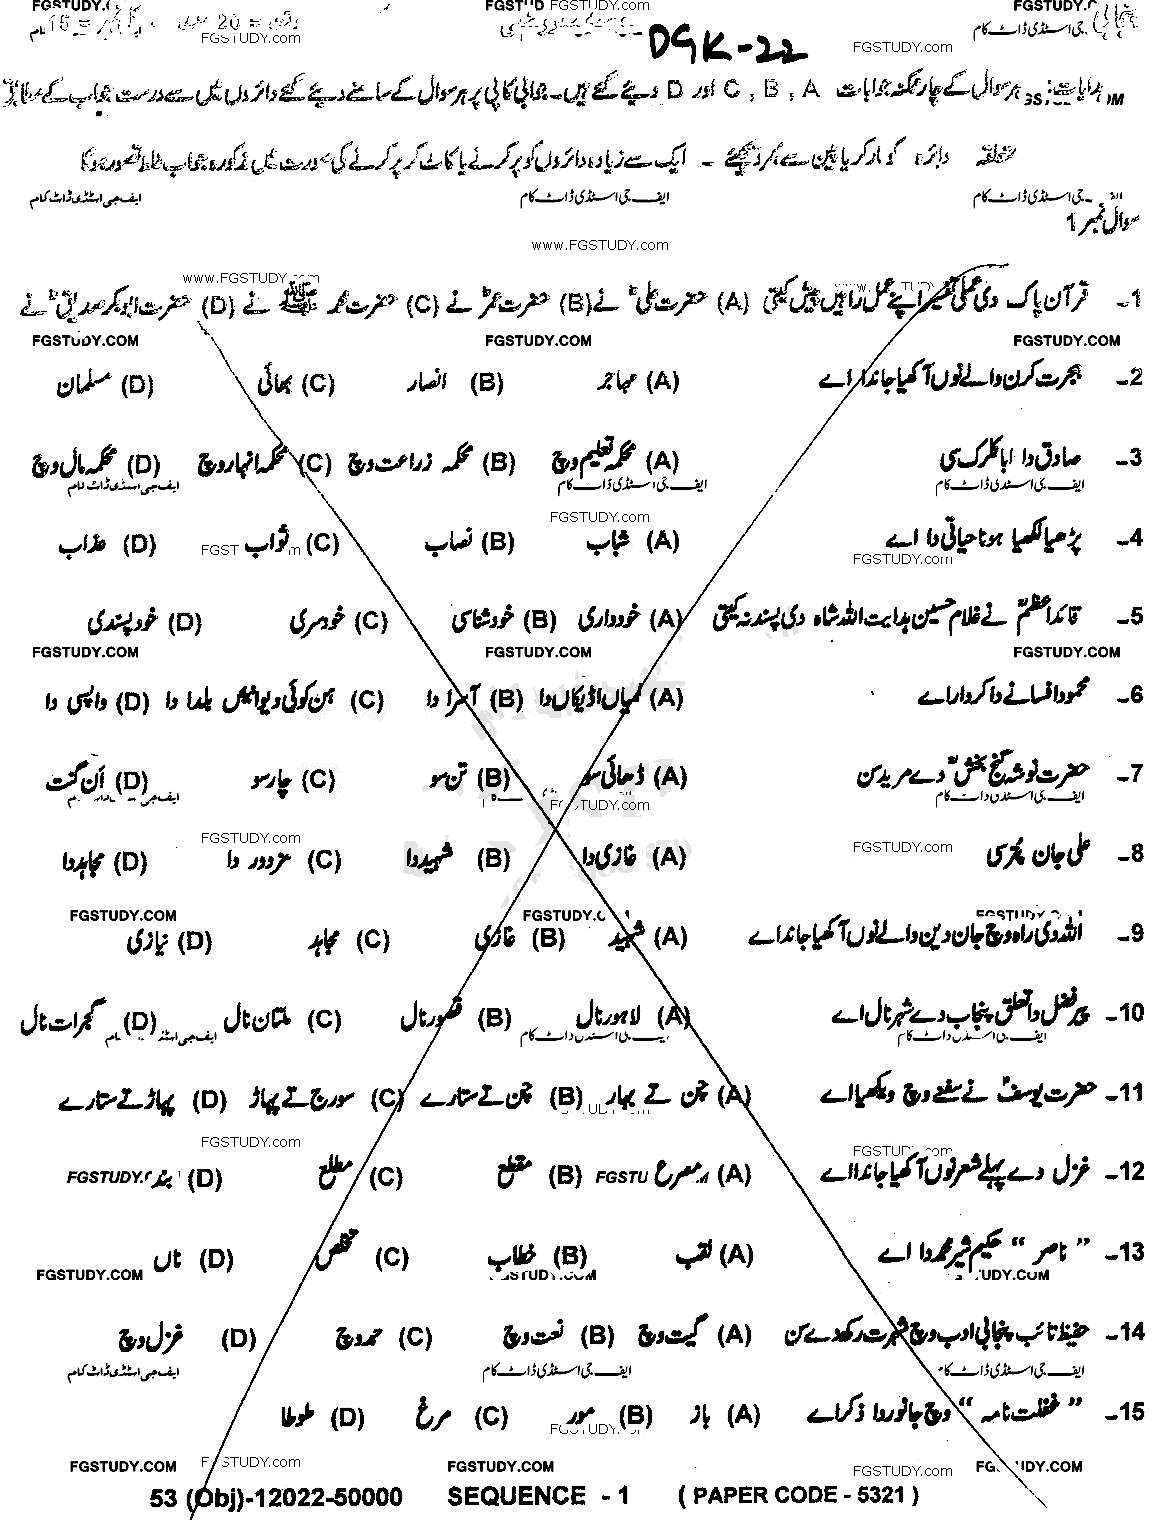 FGSTUDY.C FGSTUD FGSTUDY.COM FGSTUDY.C
پنجابی
جی اسٹڈی ڈاٹ کام
FGSTUDY.com FGSTUDY.com
DGK-22
ہدایات: ہر سوال کے چار ممکنہ جوابات A ، B ، C اور D دیئے گئے ہیں۔ جوابی کاپی پر ہر سوال کے سامنے دیئے گئے دائروں میں سے درست جواب کے مطابق
متعلقہ دائرہ کو مارکر یا پین سے بھر دیجئے ۔ ایک سے زیادہ دائروں کو پر کرنے یا کاٹ کر پر کرنے کی صورت میں مذکورہ جواب غلط تصور ہوگا
جی اسٹڈی ڈاٹ کام ایف جی اسٹڈی ڈاٹ کام ایف جی اسٹڈی ڈاٹ کام
سوال نمبر 1
www.FGSTUDY.com
www.FGSTUDY.com
1۔ قرآن پاک دی عملی تفسیر اپنے عمل راہیں پیش کیتی (A) حضرت علیؓ نے (B) حضرت عمرؓ نے (C) حضرت محمد ﷺ نے (D) حضرت ابوبکر صدیقؓ نے
FGSTUDY.COM FGSTUDY.COM FGSTUDY.COM
2۔ ہجرت کرن والے نوں آکھیا جاندا اے (A) مہاجر (B) انصار (C) بھائی (D) مسلمان
3۔ صادق دا ابا کلرک سی (A) محکمہ تعلیم وچ (B) محکمہ زراعت وچ (C) محکمہ انہار وچ (D) محکمہ مال وچ
ایف جی اسٹڈی ڈاٹ کام ایف جی اسٹڈی ڈاٹ کام ایف جی اسٹڈی ڈاٹ کام
FGSTUDY.com
4۔ پڑھیا لکھیا ہونا حیاتی دا اے (A) شباب (B) نصاب (C) ثواب (D) عذاب
FGSTUDY.com
5۔ قائداعظمؒ نے غلام حسین ہدایت اللہ شاہ دی پسند نہ کیتی (A) خودداری (B) خودشناسی (C) خودسری (D) خود پسندی
FGSTUDY.COM FGSTUDY.COM FGSTUDY.COM
6۔ محمود افسانے دا کردار اے (A) کمیاں اڈیکاں دا (B) آسرا دا (C) ہن کوئی دیوا نہیں بلدا دا (D) واپسی دا
7۔ حضرت نوشہ گنج بخشؒ دے مرید سن (A) ڈھائی سو (B) تن سو (C) چار سو (D) ان گنت
ایف جی اسٹڈی ڈاٹ کام
FGSTUDY.com FGSTUDY.com
8۔ علی جان پتر سی (A) غازی دا (B) شہید دا (C) مزدور دا (D) مجاہد دا
FGSTUDY.COM FGSTUDY.C
9۔ اللہ دی راہ وچ جان دین والے نوں آکھیا جاندا اے (A) شہید (B) غازی (C) مجاہد (D) نیازی
10۔ پیر فضل دا تعلق پنجاب دے شہر نال اے (A) لاہور نال (B) قصور نال (C) ملتان نال (D) گجرات نال
11۔ حضرت یوسفؑ نے سفنے وچ ویکھیا اے (A) چن تے بہار (B) چن تے ستارے (C) سورج تے پہاڑ (D) پہاڑ تے ستارے
FGSTUDY.com
12۔ غزل دے پہلے شعر نوں آکھیا جاندا اے (A) مصرع (B) مقطع (C) مطلع (D) بند
13۔ "ناصر" حکیم شیر محمد دا اے (A) لقب (B) خطاب (C) تخلص (D) ناں
FGSTUDY.COM
14۔ حفیظ تائب پنجابی ادب وچ شہرت رکھدے سن (A) گیت وچ (B) نعت وچ (C) حمد وچ (D) غزل وچ
ایف جی اسٹڈی ڈاٹ کام ایف جی اسٹڈی ڈاٹ کام ایف جی اسٹڈی ڈاٹ کام
15۔ "غفلت نامہ" وچ جانور دا ذکر اے (A) باز (B) مور (C) مرغ (D) طوطا
FGSTUDY.COM FGSTUDY.com FGSTUDY.COM FGSTUDY.com
53 (Obj)-12022-50000 SEQUENCE - 1 ( PAPER CODE - 5321 )